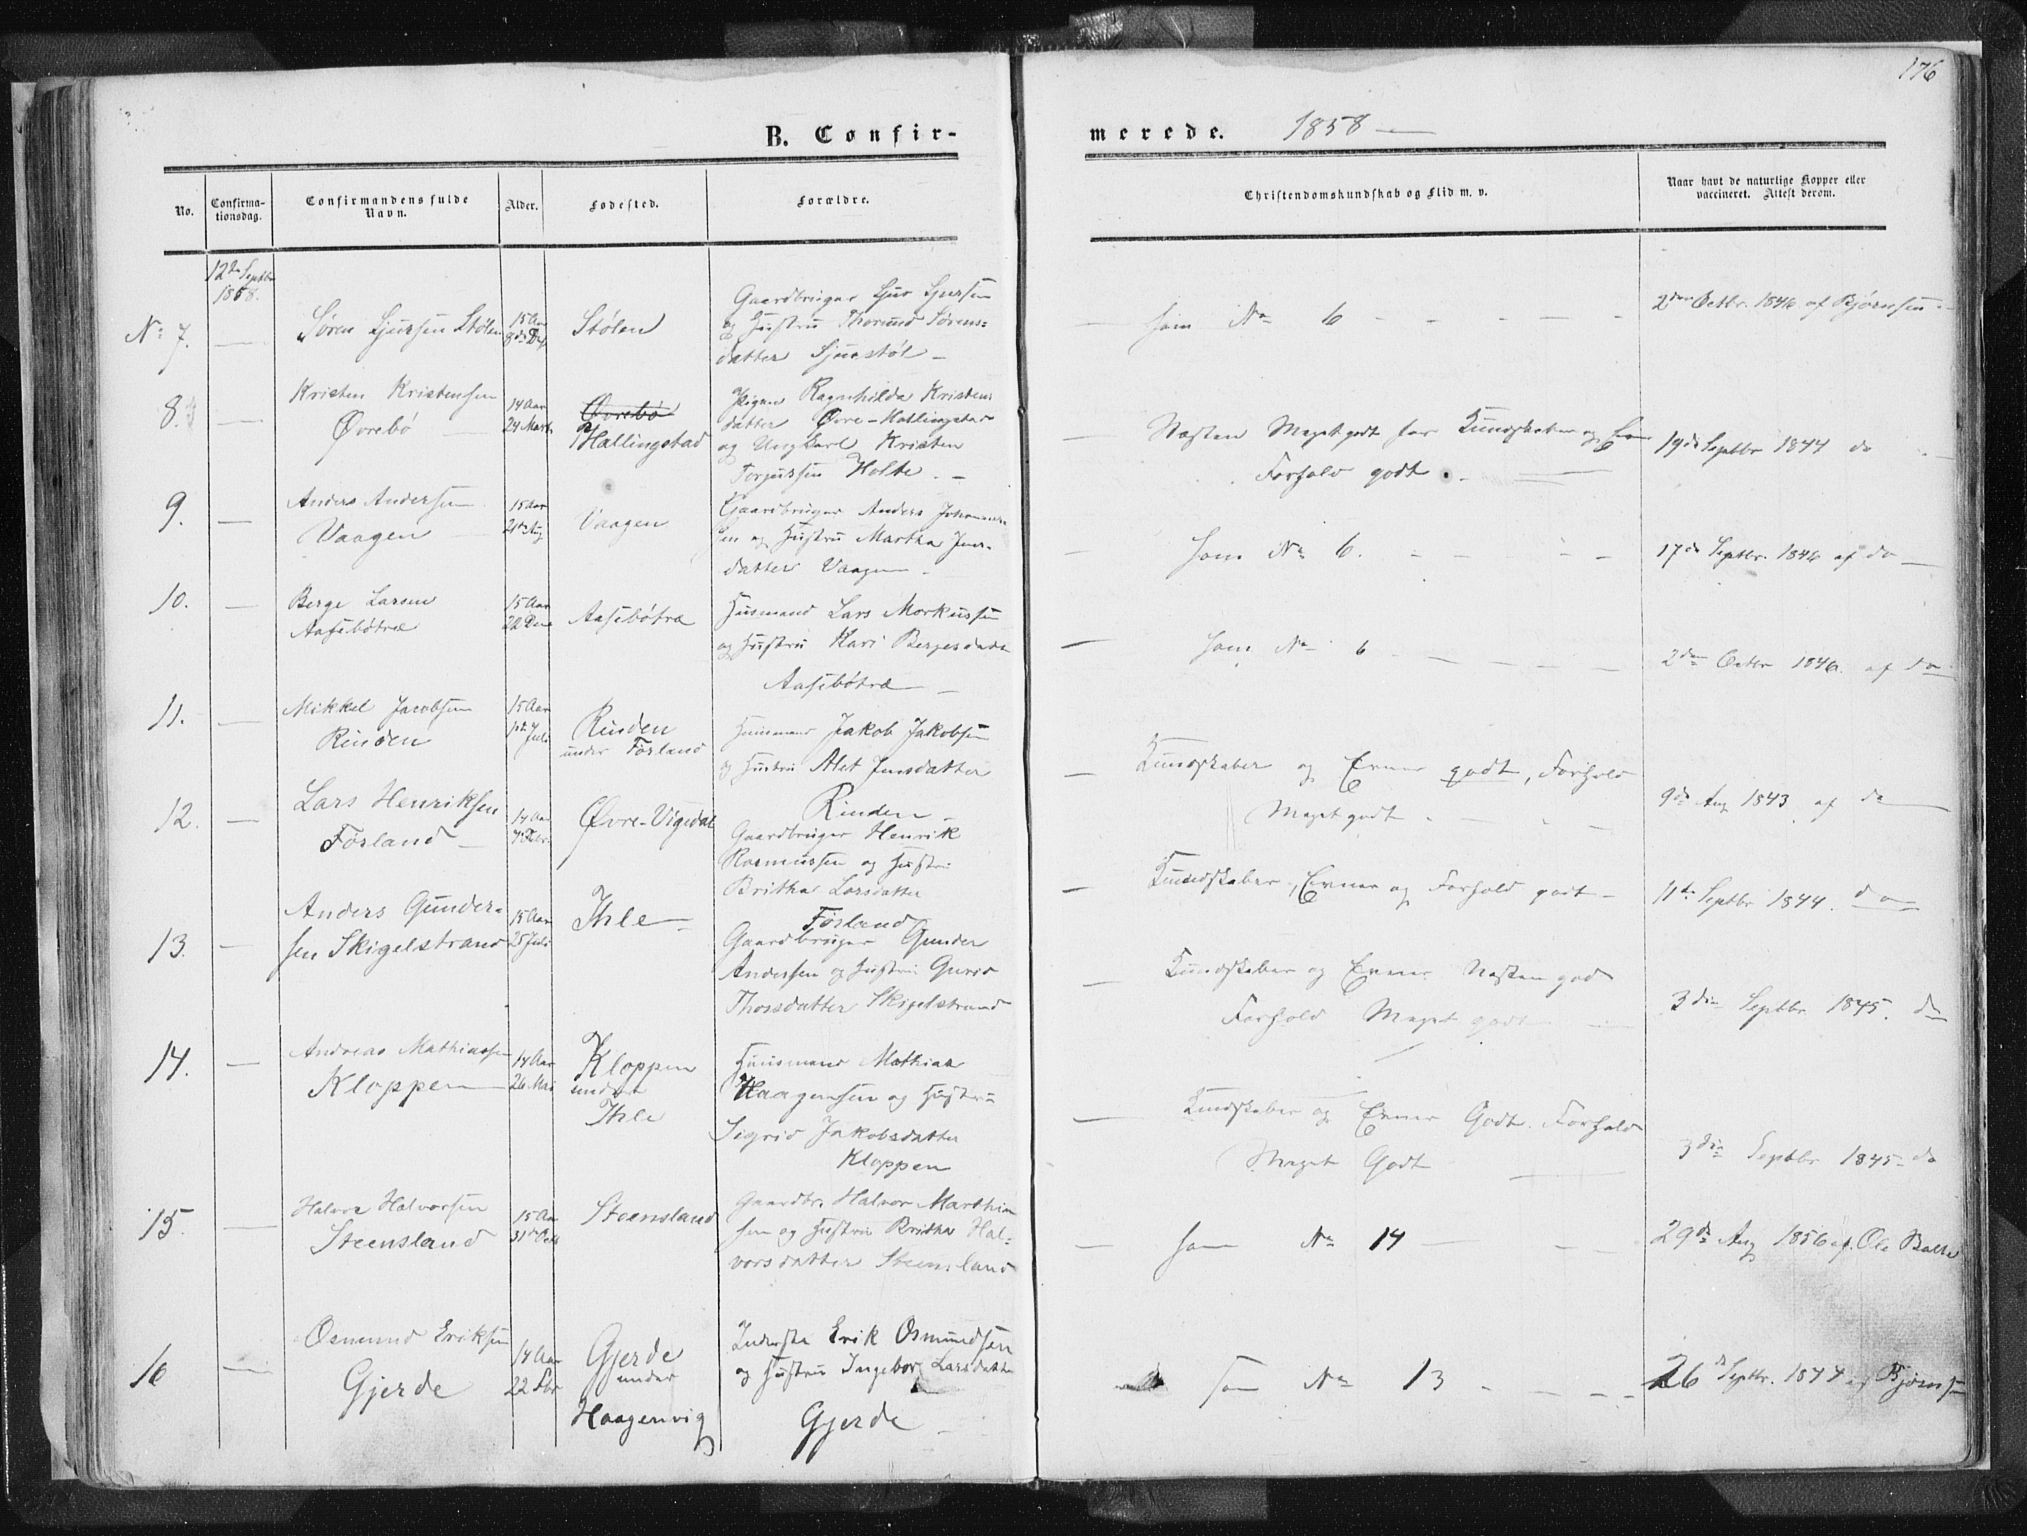 176
B. Confir-
merede. 1858 —
No.
Confirma-
tionsdag.
Confirmandens fulde
Navn.
Alder.
Fødested.
Forældre.
Christendomskundskab og Flid m. v.
Naar havt de naturlige Kopper eller
vaccineret. Attest derom.
12te Septbr
1858.
No 7. — Søren Sjursen Stølen 15 Aar Stølen
Gaardbruger Sjur Sjursen
og Hustru Thorund Sørens-
datter Sjurstøl —
— som No 6 — — — — —
2den Octbr. 1846 af Bjørnsen
8. — Kristen Kristensen
Øvrebø
14 Aar
24 Marts
Øvrebø
Hallingstad
Pigen Ragnhilda Kristens
datter Øvre-Hallingstad
og Ungkarl Kristen
Torjussen Holte. —
— Næsten Meget godt for Kundskaber og Evner
Forhold godt. —
19de Septbr 1844 do
9. — Anders Andersen
Vaagen
15 Aar
21de Aug
Vaagen
Gaardbruger Anders Johannes-
sen og Hustru Martha
datter Vaagen —
— som No 6. — — — —
17de Septbr. 1846 af do —
10. — Berge Larsen
Aasebøtræ
15 Aar
22 Dec
Aasebøtræ
Husmand Lars Morkussen
og Hustru Kari Bergesdatt
Aasebøtræ —
— som No 6 — — — — —
2den Octbr 1846. af do —
11. — Mikkel Jacobsen
Rinden
15 Aar
1ste Juli
Rinden
under Førland
Huusmand Jakob Jakobsen
og Hustru Alet Jensdatter
Rinden —
— Kundskaber og Evner godt, Forhold
Meget godt — — —
9de Aug 1843 af do —
12. — Lars Henriksen
Førland —
14 Aar
Øvre-Vigedal
Gaardbruger Henrik
Rasmussen og Hustru
Britha Larsdatter
Førland
— Kundskaber, Evner og Forhold godt —
11te Septbr 1844. do
13. — Anders Gunder-
sen Skigelstrand
15 Aar
25 Juli
Ihle —
Gaardbruger Gunder
Andersen og Hustru Gurid
Thorsdatter Skigelstrand
— Kundskaber og Evner Næsten god
Forhold Meget godt —
3die Septbr 1845. do
14. — Andreas Mathiassen
Kloppen —
14 Aar
26 Mai
Kloppen
under
Ihle
Huusmand Mathias
Haagensen og Hustru
Sigrid Jakobsdatter
Kloppen
— Kundskaber og Evner Godt. Forhold
Meget Godt
3die Septbr 1845 — do
15. — Halvor Halvorsen
Steensland
15 Aar
31te Octb
Steensland
Gaardbr. Halvor Marthin
sen og Hustru Britha Hal-
vorsdatter Steensland
— som No 14 —
29de Aug 1856 af Ole
16 — Osmund Eriksen
Gjerde
14 Aar
22
Gjerde
under
Haagenvig
Inderste Erik Osmundsen
og Hustru Ingeborg Larsdatter
Gjerde —
som No 13 — — — —
26de Septbr. 1844 af Bjørnsen